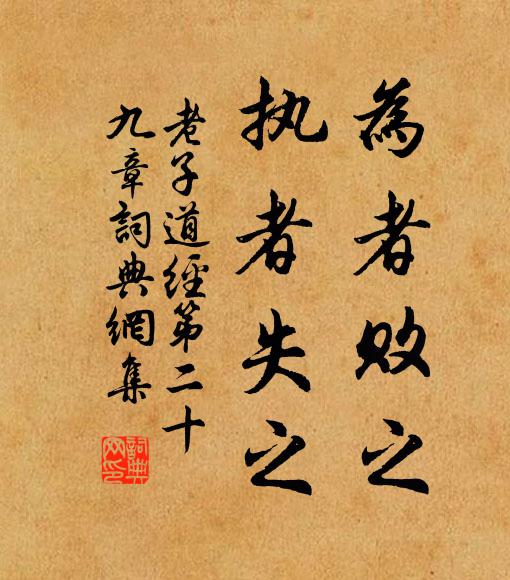 為者敗之
执者失之
老子道經第二十
九章詞典網集
詞典
网印